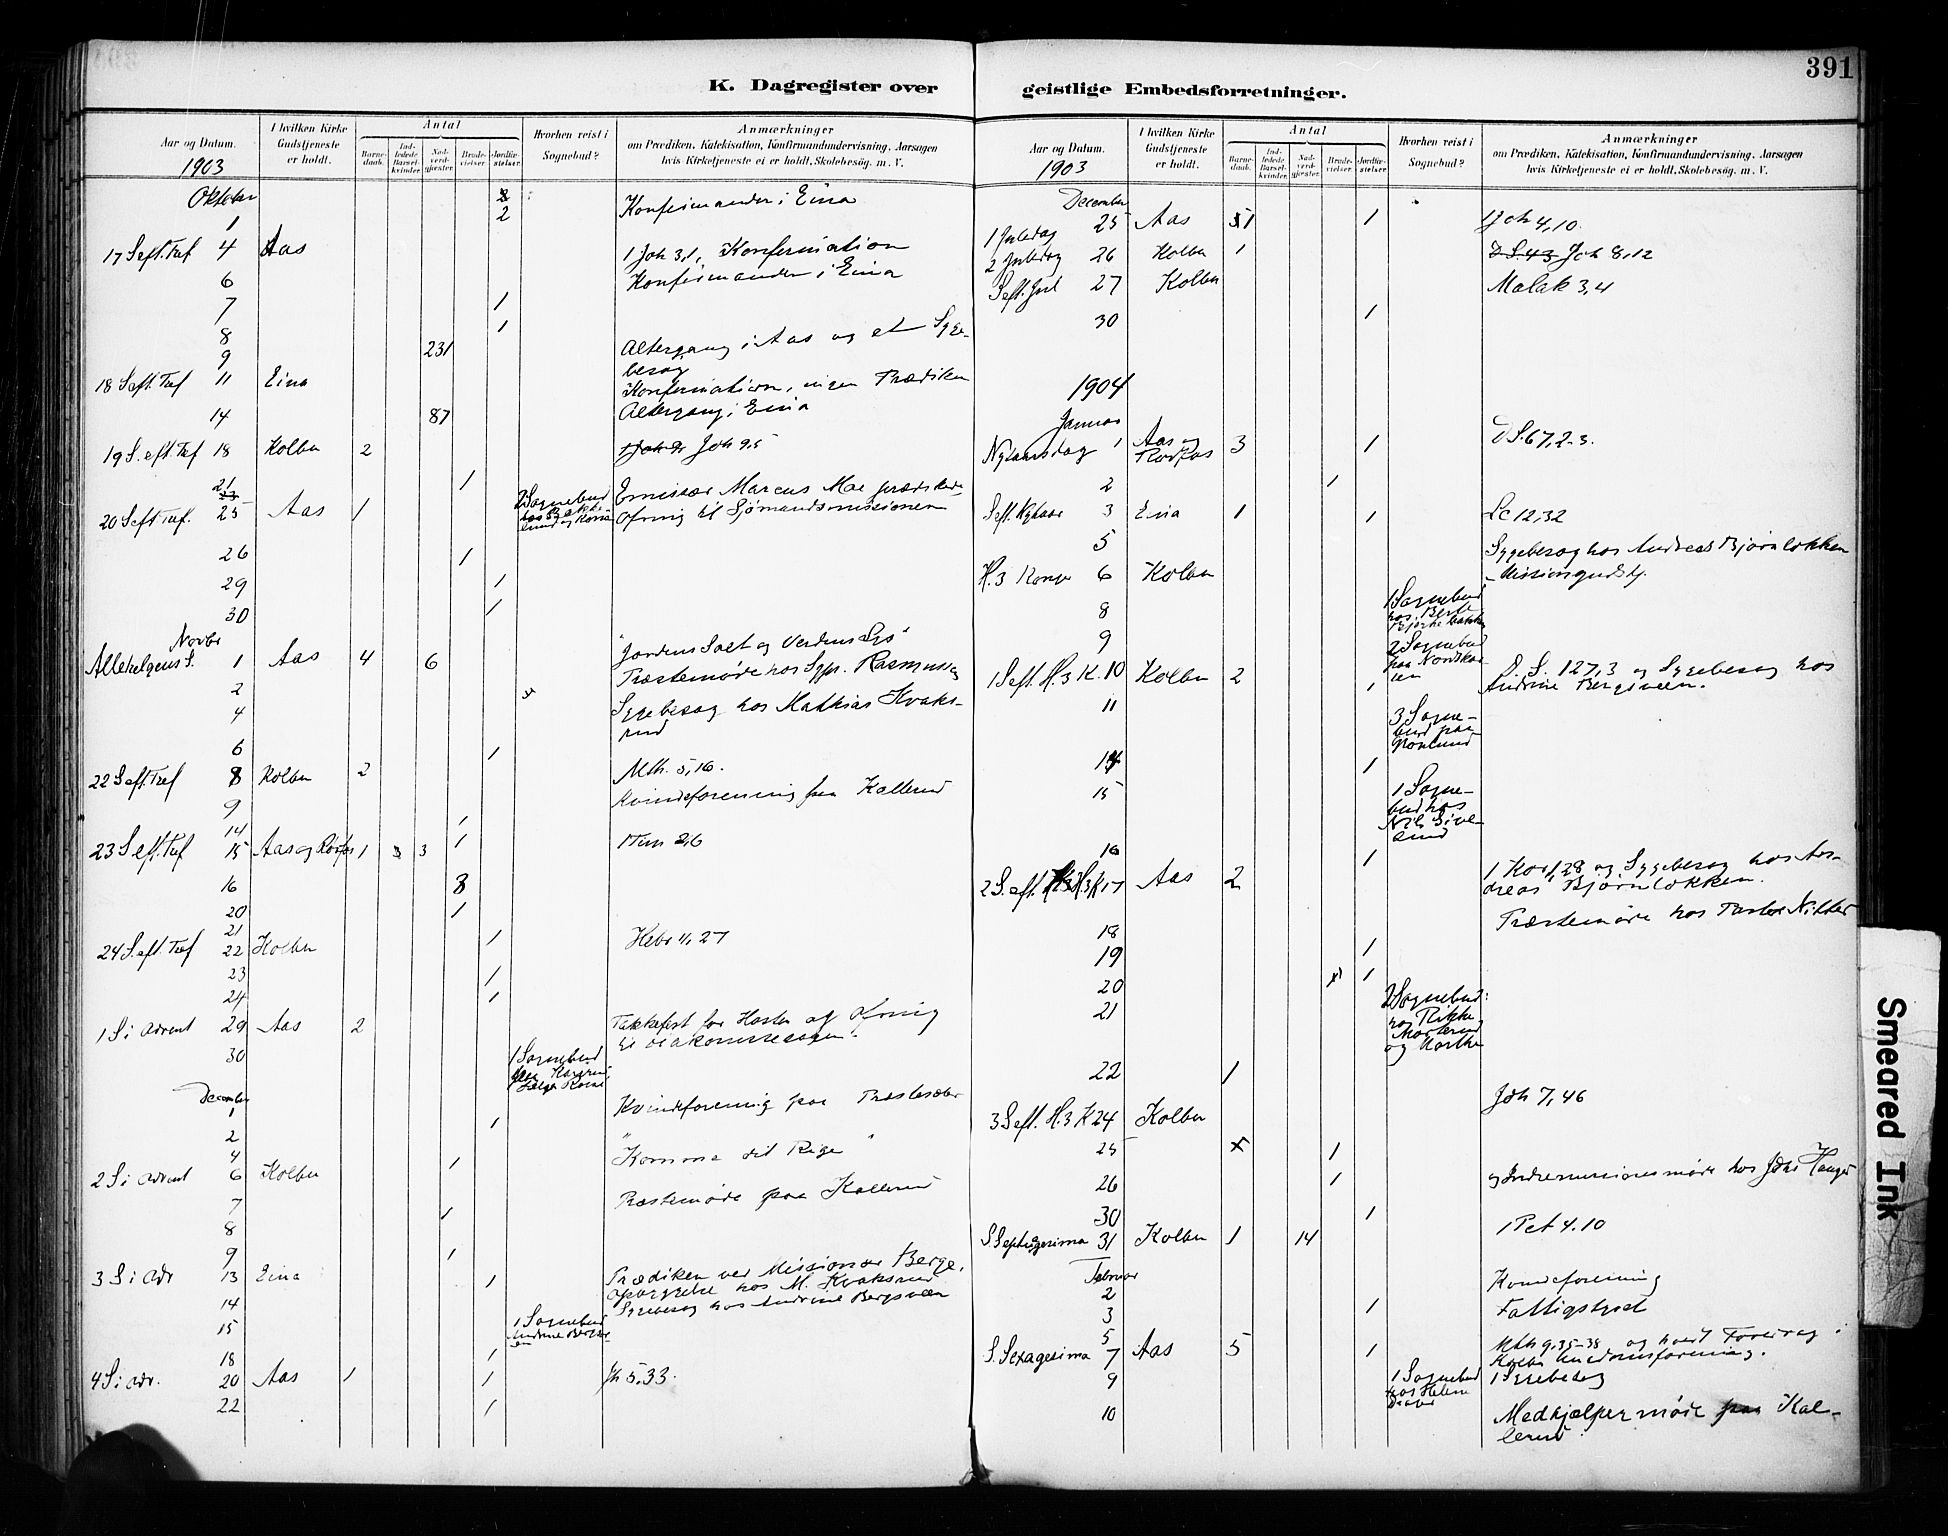 391
K. Dagregister over geistlige Embedsforretninger.
Aar og Datum.
I hvilken Kirke Gudstjeneste er holdt.
Antal
Barnedaab.
Indledede Barselkvinder.
Nadverdgjester.
Brudevielser.
Jordfæstelser.
Hvorhen reist i Sognebud?
Anmærkninger
om Prædiken, Katekisation, Konfirmandundervisning, Aarsagen
hvis Kirketjeneste ei er holdt, Skolebesøg. m. V.
1903
Oktober
1 2 Konfirmander i Eina
17 S eft. Tref 4 Aas 1 Joh 3,1, Konfirmation
6 Konfirmander i Eina
7 1
8 1
9 231 Altergang i Aas og et Sygebesøg
18 S eft. Tref 11 Eina Konfirmation, ingen Prædiken
14 87 Altergang i Eina
19 S. eft. Tref 18 Kolbu 2 Joh 9.5
21 1
20 S eft Tref. 25 Aas 1 2 Sognebud Emissær Marcus Moe prædikede.
Ofring til Sjømandsmissionen
26 1
29 1
30 1
Novbr
Allehelgens S. 1 Aas 4 6 "Jordens Salt og Verdens Lys"
2 Præstemøde hos Sgpr. Rasmussen
4 Sygebesøg hos Mathias Kvaksrud
6 1
22 S eft. Tref 8 Kolbu 2 Mth. 5,16.
9 Kvindeforening paa Kallerud
14 1
23 S eft. Tref 15 Aas og Røisfos 1 3 1 1 Tim 2,6
16 8
20 1
21 1
24 S. eft. Tref 22 Kolbu Hebr 11,27
23 1
24 1
1 S i Advent 29 Aas 2 Takkefest for Høsten og Ofring
til Diakonissesagen.
30 1 Sognebud
December
1 Kvindeforening paa Præstesæter
2 1
4 1
2 S i Advent 6 Kolbu "Komme dit Rige"
7 1 Præstemøde paa Kallerud
8
9 1
3 S i Adv 13 Eina 1 Prædiken ved Missionær Berge,
hos M. Kvaksrud
14 Sygebesøg hos Andrine Bergsveen
15 1 Sognebud
18 1
4 S i Adv. 20 Aas 1 1 Jh 5,33.
22 1
Aar og Datum.
I hvilken Kirke Gudstjeneste er holdt.
Antal
Barnedaab.
Indledede Barselkvinder.
Nadverdgjester.
Brudevielser.
Jordfæstelser.
Hvorhen reist i Sognebud?
Anmærkninger
om Prædiken, Katekisation, Konfirmandundervisning, Aarsagen
hvis Kirketjeneste ei er holdt, Skolebesøg. m. V.
1903
December
1 Juledag 25 Aas 1 1 Joh 4,10.
2 Juledag 26 Kolbu 1 D S. 43 Joh 8,12
S eft. Jul 27 Kolbu Malak 3,4
30 1
1904
Januar
Nytaarsdag 1 Aas og 3 1 D S. 67,2-3.
2 1
S eft. Nytaar 3 Eina 1 1 Lc 12,32
5 Sygebesøg hos Andreas Bjørnløkken
H. 3 Konge 6 Kolbu Missionsgudstj.
8 1 Sognebud
9 2 Sognebud
1 S eft. H. 3 K. 10 Kolbu 2 1 D. S. 127,3 og Sygebesøg hos
Andrine Bergsveen.
11 3 Sognebud paa
14 1
15 1 Sognebud hos
Nils
16 1
2 S. eft. H. 3 K 17 Aas 2 1 Kor 1,28 og Sygebesøg hos Andreas Bjørnløkken.
18 Præstemøde hos Pastor Nitter
19 1
20 1
21 2 Sognebud:
22 1
3 S eft. H. 3 K 24 Kolbu Joh 7,46
25 1
26 1 og Indremissionsmøde hos Johs Hauger
30 1
S Septuagesima 31 Kolbu 1 14 1 Pet 4.10
Februar
2 Kvindeforening
3 1 Fattigstyret
5 1
S. Sexagesima 7 Aas 5 Mth 9,35-38 og holdt Foredrag i
Kolbu Ungdomsforening.
9 1 Sognebud hos Helene 1 Sygebesøg
10 Medhjælpermøde paa Kallerud
Smeared Ink